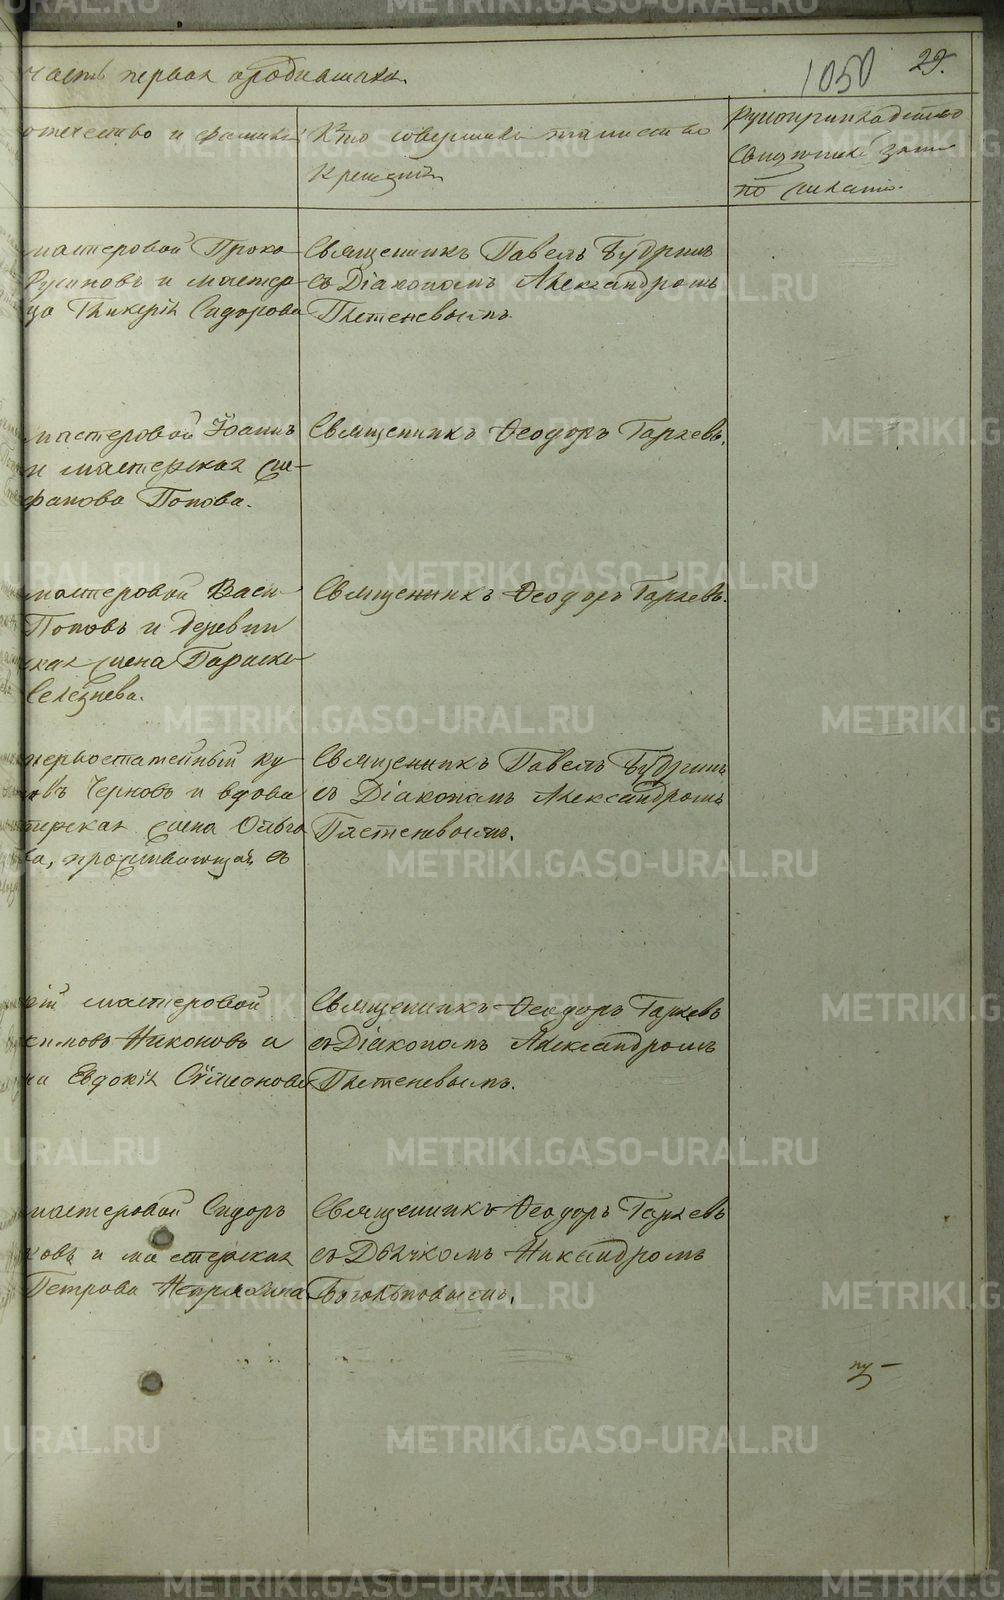 часть первая о родившихся.
1050
29.
отчество и фамилия
Кто совершалъ таинство
Крещенія
Рукоприкладство
свидѣтелей записи
по желанію.
мастеровой Проко-
Русиновъ и мастер-
ца Гликерія Сидорова
Священникъ Павелъ Будринъ
съ Діакономъ Александромъ
Плетеневымъ.
мастеровой Іоаннъ
и мастерская же-
фанова Попова.
Священникъ Ѳеодоръ Гаряевъ.
мастеровой Васи-
Поповъ и деревни
ская жена Параске-
Селезнева.
Священникъ Ѳеодоръ Гаряевъ.
первостатейный ку-
въ Черновъ и вдова
терская жена Ольга
ва, проживающая въ
Священникъ Павелъ Будринъ
съ Діакономъ Александромъ
Плетеневымъ.
кій мастеровой
симовъ Никоновъ и
на Евдокія Сѵмеонова
Священникъ Ѳеодоръ Гаряевъ
съ Діакономъ Александромъ
Плетеневымъ.
мастеровой Сидоръ
ковъ и мастерская
Петрова Непряхина
Священникъ Ѳеодоръ Гаряевъ
съ Дьячкомъ Никандромъ
Боголѣповымъ.
METRIKI.GASO-URAL.RU